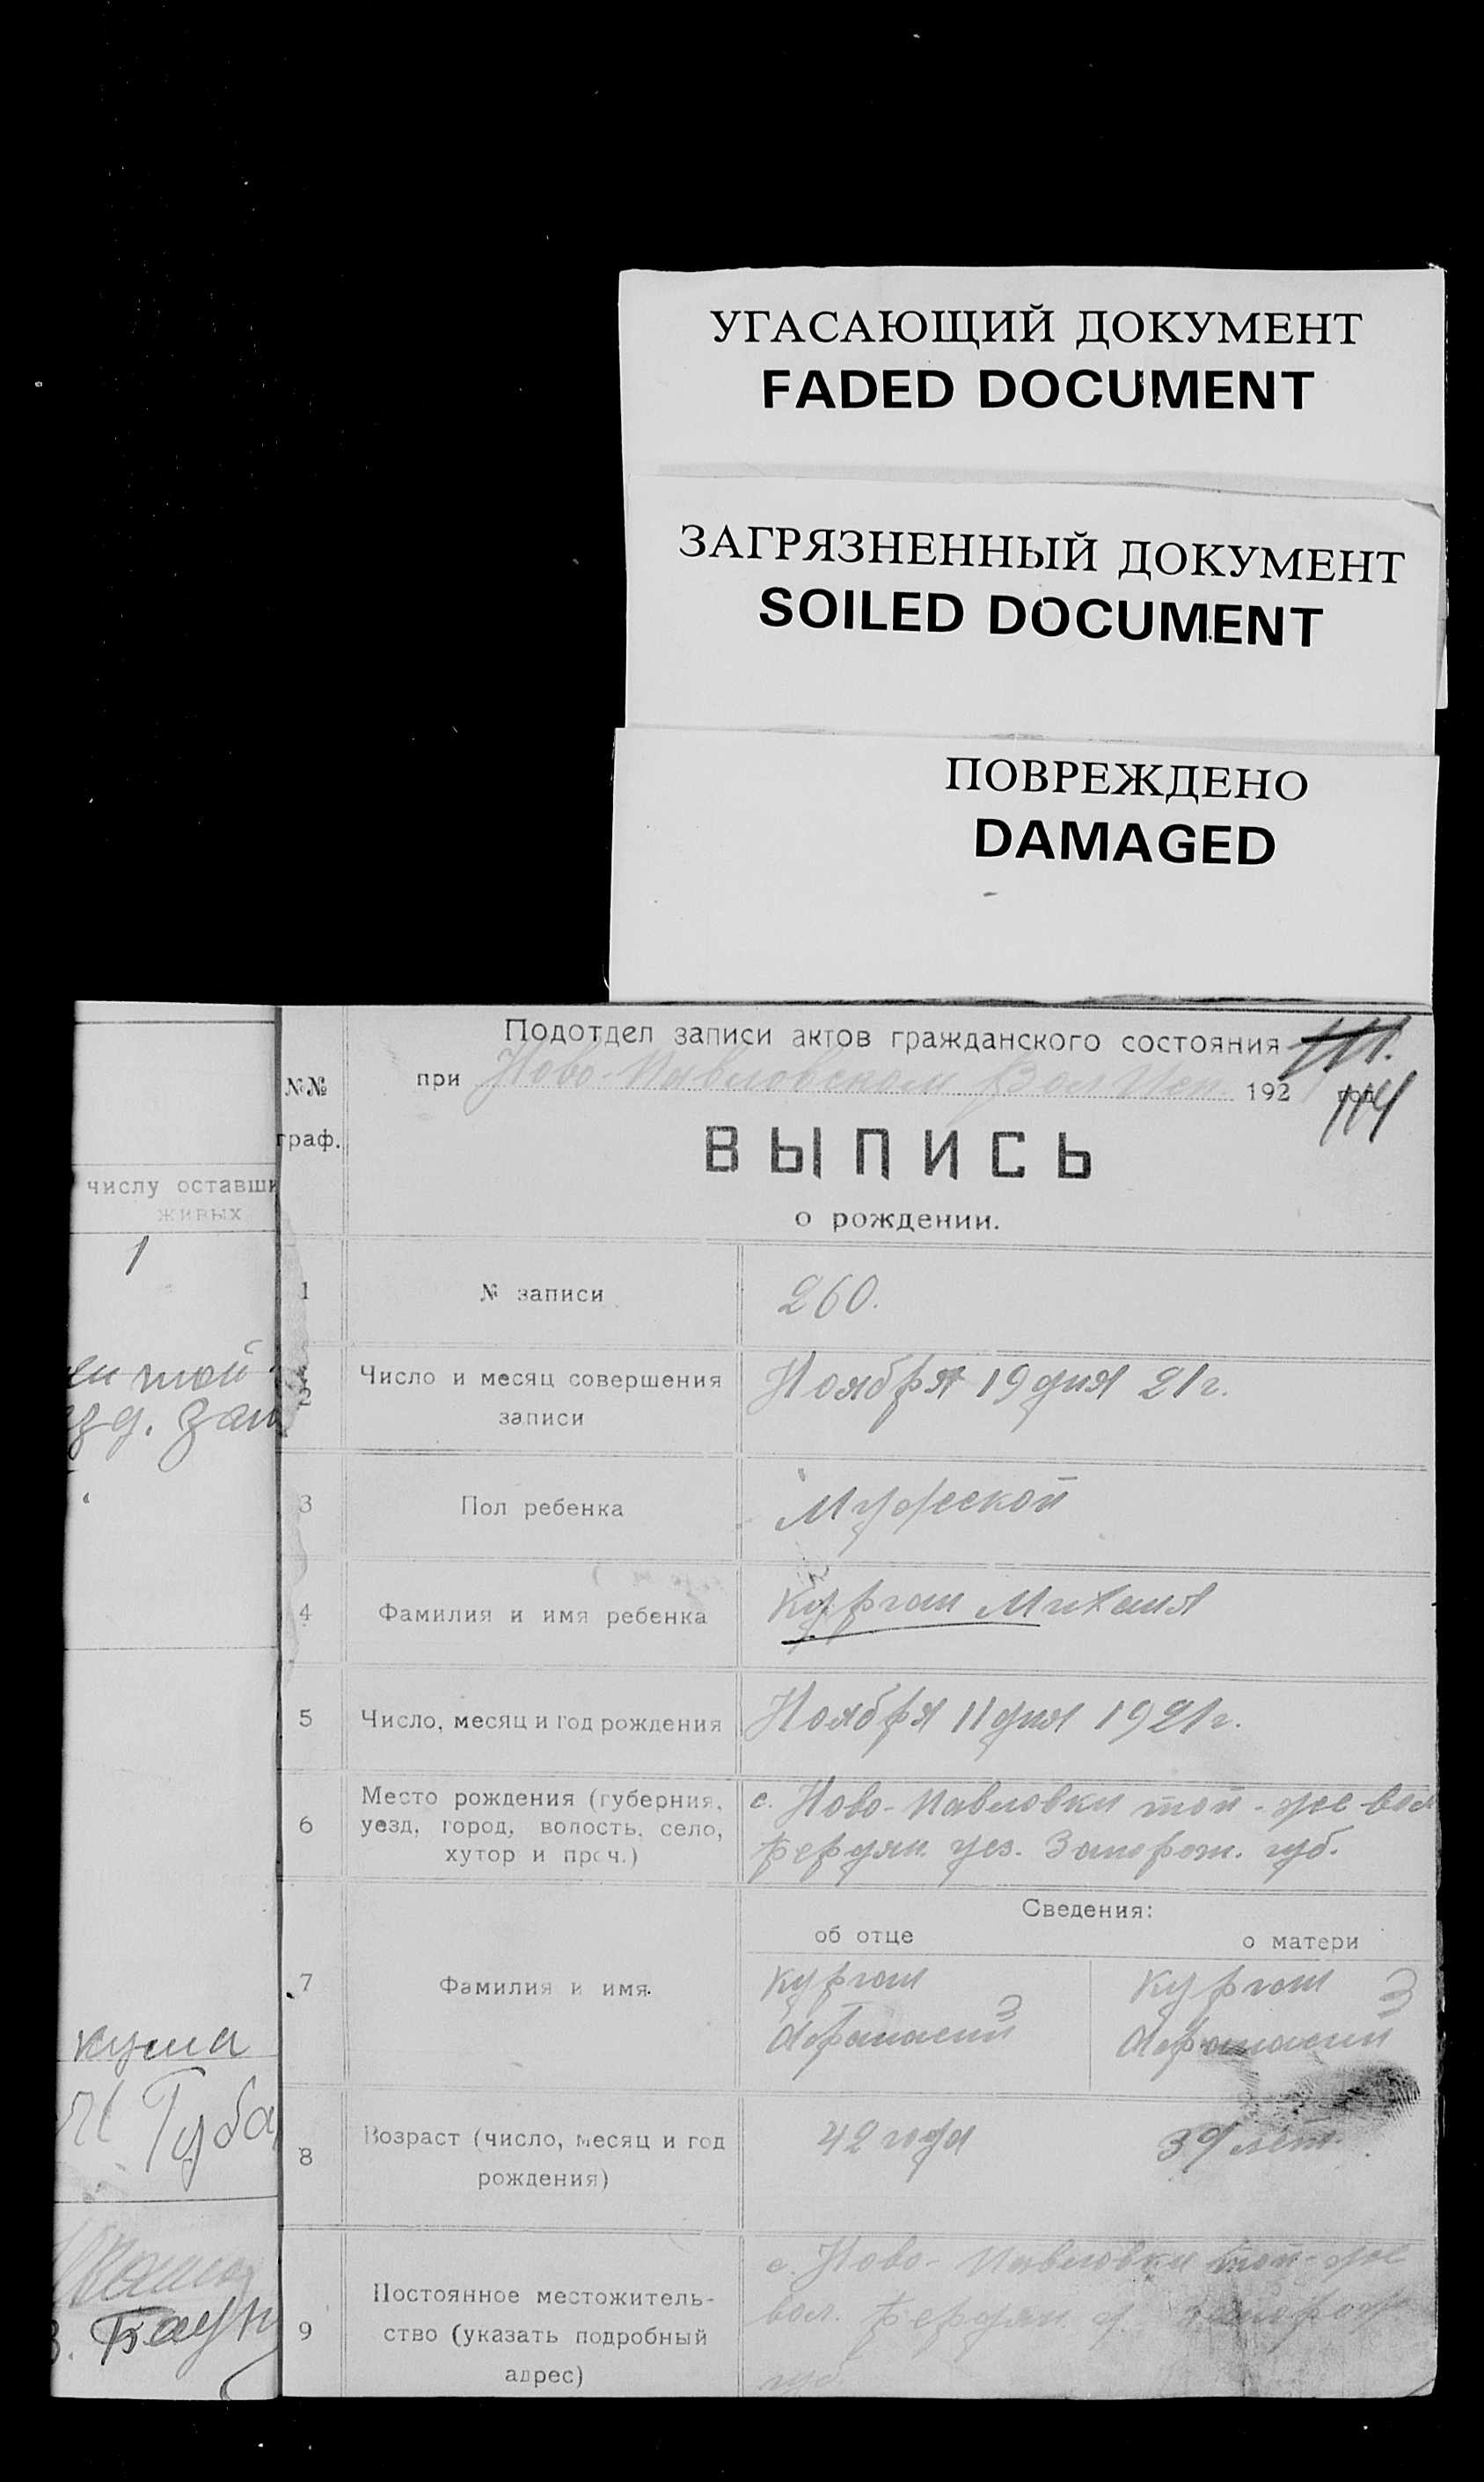 УГАСАЮЩИЙ ДОКУМЕНТ
FADED DOCUMENT
ЗАГРЯЗНЕННЫЙ ДОКУМЕНТ
SOILED DOCUMENT
ПОВРЕЖДЕНО
DAMAGED
числу оставши
живых
1
той
кума
Губа
Подотдел записи актов гражданского состояния 111.
при Ново-Павловском Вол Исп. 192 год
114
№№
граф.
ВЫПИСЬ
о рождении.
1 № записи 260.
2 Число и месяц совершения Ноября 19 дня 21 г.
записи
3 Пол ребенка Мужеской
4 Фамилия и имя ребенка Кургаш Михаил
5 Число, месяц и год рождения Ноября 11 дня 1921 г.
Место рождения (губерния, с. Ново-Павловки той-же вол
6 уезд, город, волость, село, Бердян. уез. Запорож. губ.
хутор и проч.)
Сведения:
об отце о матери
7 Фамилия и имя. Кургаш Кургаш
Афанасий Афанасий
8 Возраст (число, месяц и год 42 года 39 лет.
рождения)
с. Ново-Павловки той-же
9 Постоянное местожитель- вол. Бердян. у. Запорож
ство (указать подробный губ.
адрес)